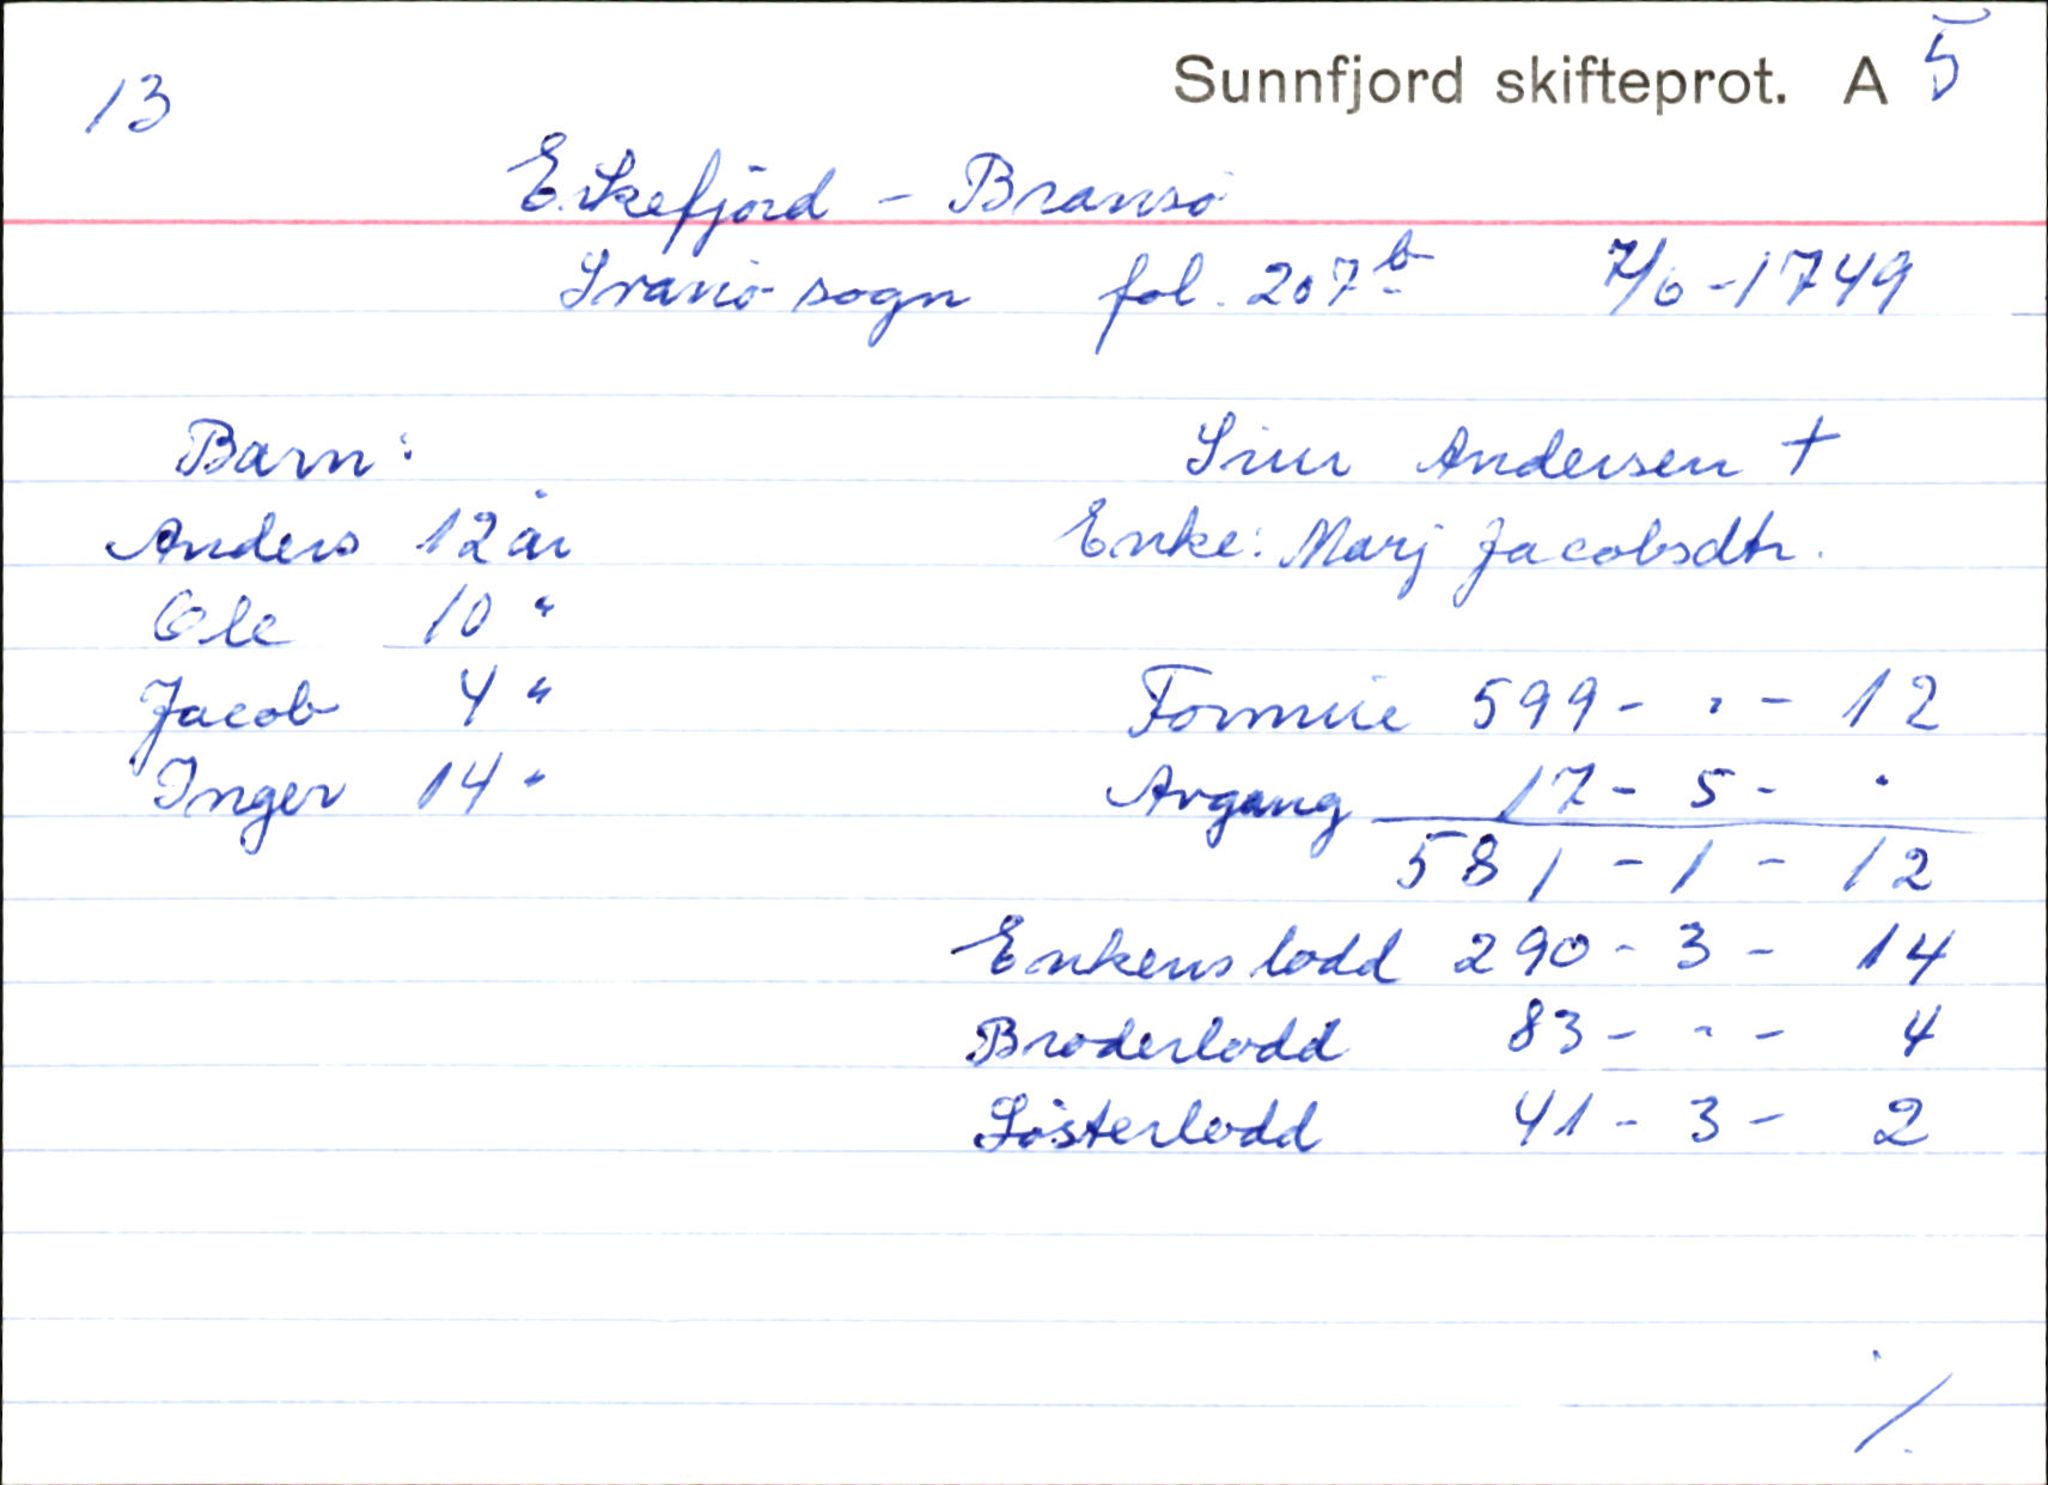 13
Sunnfjord skifteprot. A 5
Eikefjord - Bransö
Svanö sogn fol. 207b 7/6-1749
Barn:
Anders 12 år
Ole 10 "
Jacob 4 "
Inger 14 "
Siur Andersen †
Enke: Marj Jacobsdtr.
Formue 599 - " - 12
Avgang 17 - 5 - "
581 - 1 - 12
Enkens lodd 290 - 3 - 14
Broderlodd 83 - " - 4
Sösterlodd 41 - 3 - 2
·/.